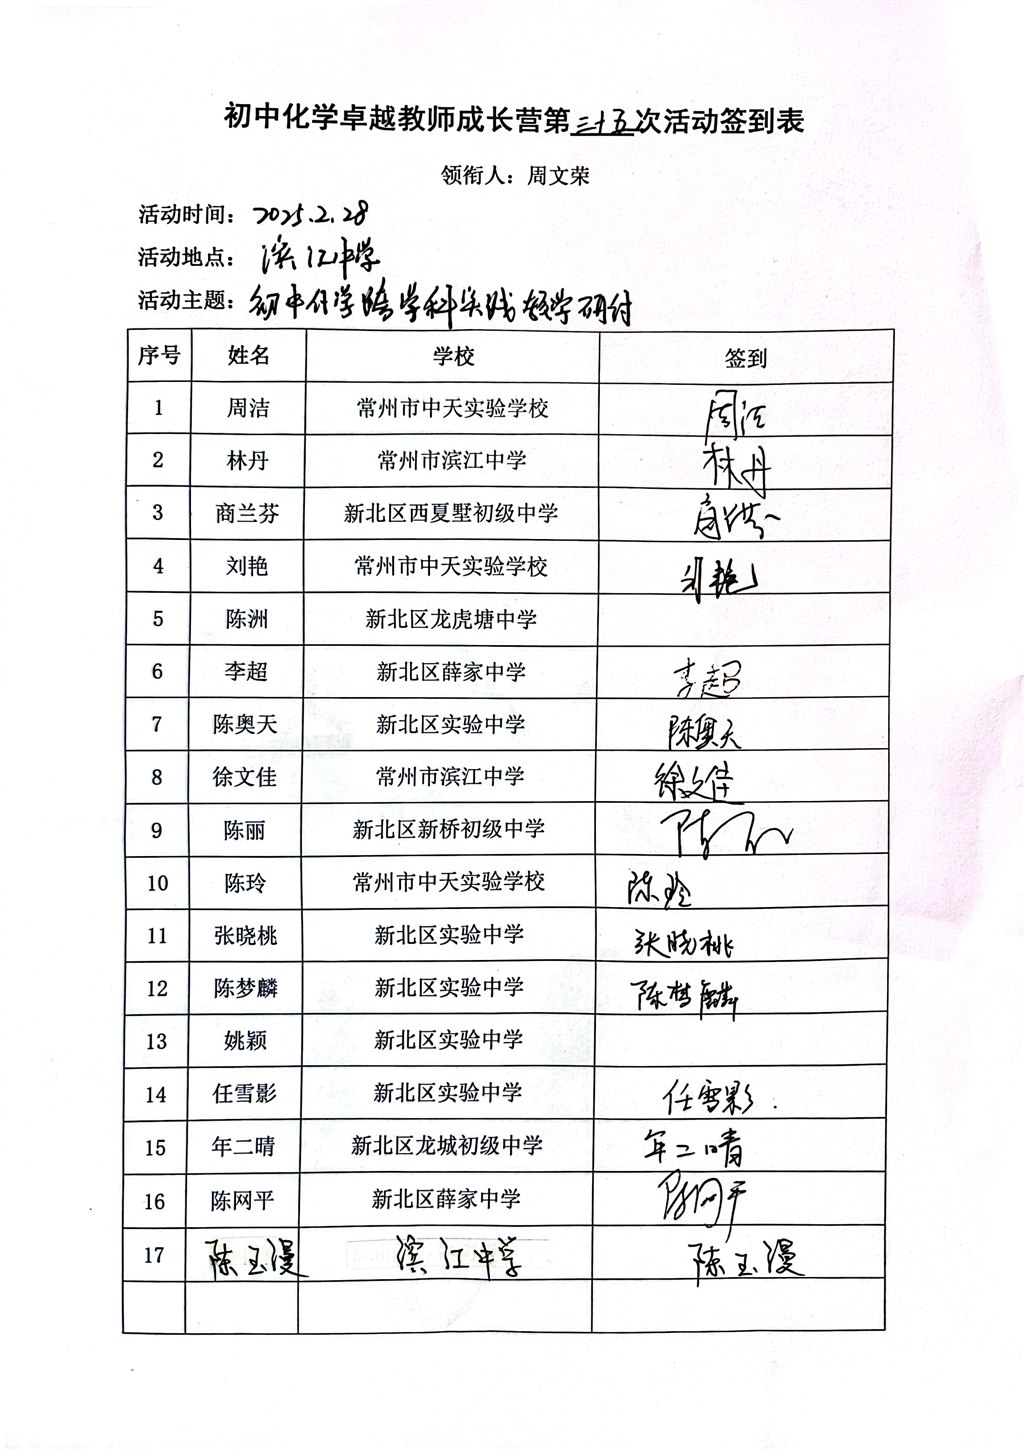 初中化学卓越教师成长营第三十五次活动签到表
领衔人：周文荣
活动时间：2025.2.28
活动地点：滨江中学
活动主题：初中化学跨学科实践教学研讨
序号 姓名 学校 签到
1 周洁 常州市中天实验学校 周洁
2 林丹 常州市滨江中学 林丹
3 商兰芬 新北区西夏墅初级中学 商兰芬
4 刘艳 常州市中天实验学校 刘艳
5 陈洲 新北区龙虎塘中学
6 李超 新北区薛家中学 李超
7 陈奥天 新北区实验中学 陈奥天
8 徐文佳 常州市滨江中学 徐文佳
9 陈丽 新北区新桥初级中学 陈丽
10 陈玲 常州市中天实验学校 陈玲
11 张晓桃 新北区实验中学 张晓桃
12 陈梦麟 新北区实验中学 陈梦麟
13 姚颖 新北区实验中学
14 任雪影 新北区实验中学 任雪影.
15 年二晴 新北区龙城初级中学 年二晴
16 陈网平 新北区薛家中学 陈网平
17 陈玉漫 滨江中学 陈玉漫